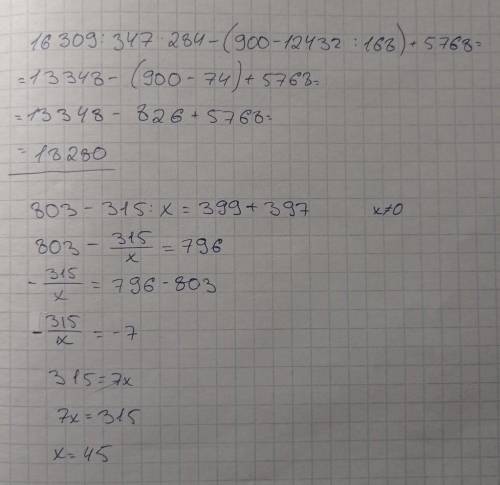 16309:347·284-(900-12432:168)+5768=
=13348-(900-74)+5768=
=13348-826+5768=
=18280
803-315:x=399+397 x≠0
803-315/x=796
-315/x=796-803
-315/x=-7
315=7x
7x=315
x=45